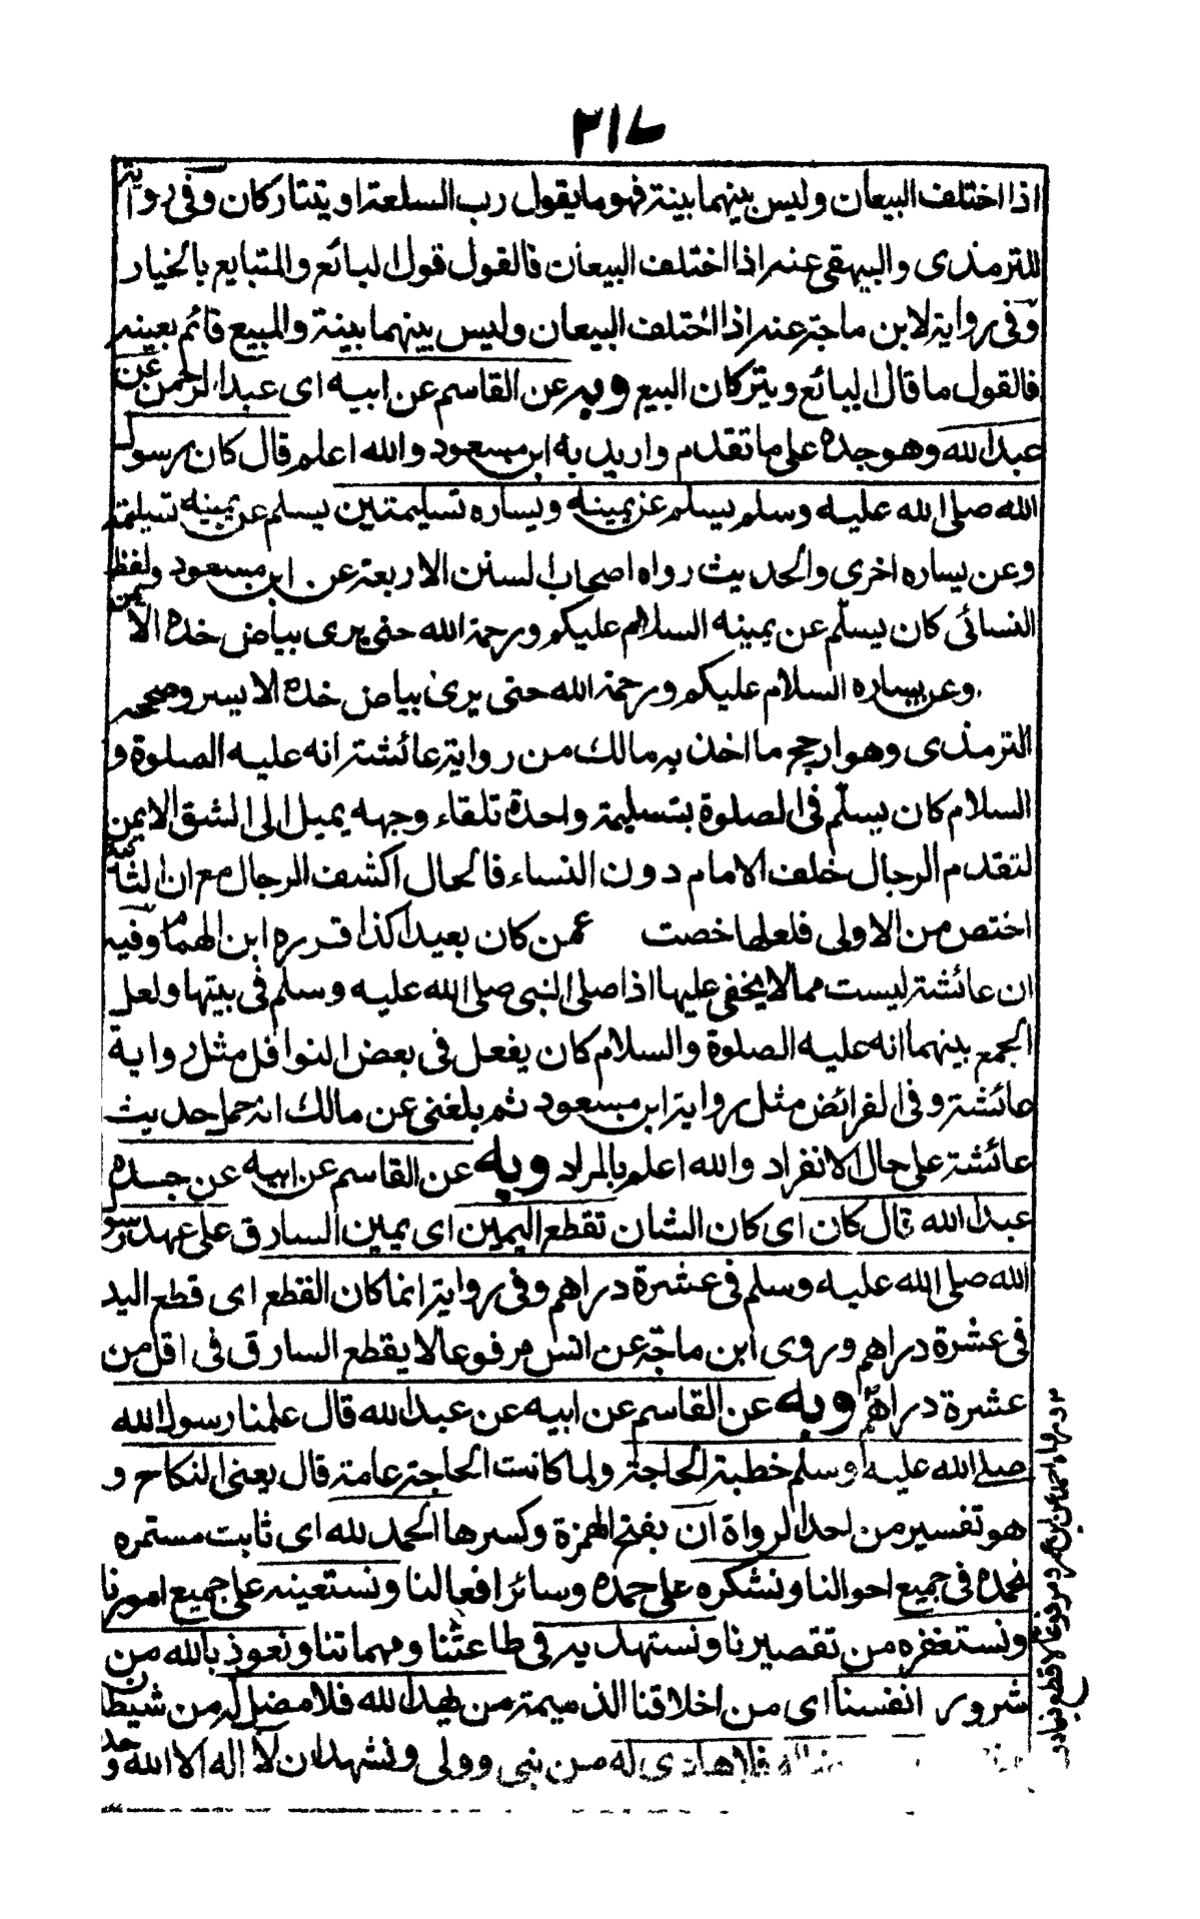 ٢١٧
اذا اختلف البيعان وليس بينهما بينة فهو ما يقول رب السلعة او يتتاركان وفى رواية
للترمذى والبيهقى عنه اذا اختلف البيعان فالقول قول البائع والمتبايع بالخيار
وفى رواية لابن ماجة عنه اذا اختلف البيعان وليس بينهما بينة والمبيع قائم بعينه
فالقول ما قال البائع ويتركان البيع وبه عن القاسم عن ابيه اى عبد الرحمن عن
عبد الله وهو جده على ما تقدم واريد به ابن مسعود والله اعلم قال كان رسول
الله صلى الله عليه وسلم يسلم عن يمينه ويساره تسليمتين يسلم عن يمينه تسليمة
وعن يساره اخرى والحديث رواه اصحاب السنن الاربعة عن ابن مسعود ولفظ
النسائى كان يسلم عن يمينه السلام عليكم ورحمة الله حتى يرى بياض خده الايمن
وعن يساره السلام عليكم ورحمة الله حتى يرى بياض خده الايسر وصححه
الترمذى وهو ارجح ما اخذ به مالك من رواية عائشة انه عليه الصلوة و
السلام كان يسلم فى الصلوة بتسليمة واحدة تلقاء وجهه يميل الى الشق الايمن
لتقدم الرجال خلف الامام دون النساء فالحال اكشف للرجال مع ان الثانية
اختص من الاولى فلعلها خصت عمن كان بعيدا كذا قرره ابن الهمام وفيه
ان عائشة ليست مما لا يخفى عليها اذا صلى النبى صلى الله عليه وسلم فى بيتها ولعل
الجمع بينهما انه عليه الصلوة والسلام كان يفعل فى بعض النوافل مثل رواية
عائشة وفى الفرائض مثل رواية ابن مسعود ثم بلغنى عن مالك انه حمل حديث
عائشة على حال الانفراد والله اعلم بالمراد وبه عن القاسم عن ابيه عن جده
عبد الله قال كان اى كان الشان تقطع اليمين اى يمين السارق على عهد رسول
الله صلى الله عليه وسلم فى عشرة دراهم وفى رواية انما كان القطع اى قطع اليد
فى عشرة دراهم وروى ابن ماجة عن انس مرفوعا لا يقطع السارق فى اقل من
عشرة دراهم وبه عن القاسم عن ابيه عن عبد الله قال علمنا رسول الله
صلى الله عليه وسلم خطبة الحاجة ولما كانت الحاجة عامة قال يعنى النكاح و
هو تفسير من احد الرواة ان بفتح الهمزة وكسرها الحمد لله اى ثابت مستمره
نحمده فى جميع احوالنا ونشكره على حمده وسائر افعالنا ونستعينه على جميع امورنا
ونستغفره من تقصيرنا ونستهديه فى طاعتنا ومهماتنا ونعوذ بالله من
شرور انفسنا اى من اخلاقنا الذميمة من يهد الله فلا مضل له من شيطان
فلا هادى له من نبى وولى ونشهد ان لا اله الا الله وحده